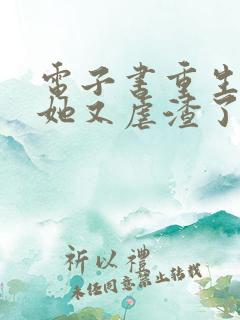 電子書重生
她又虐渣了
祈以禮
未经同意禁止转载